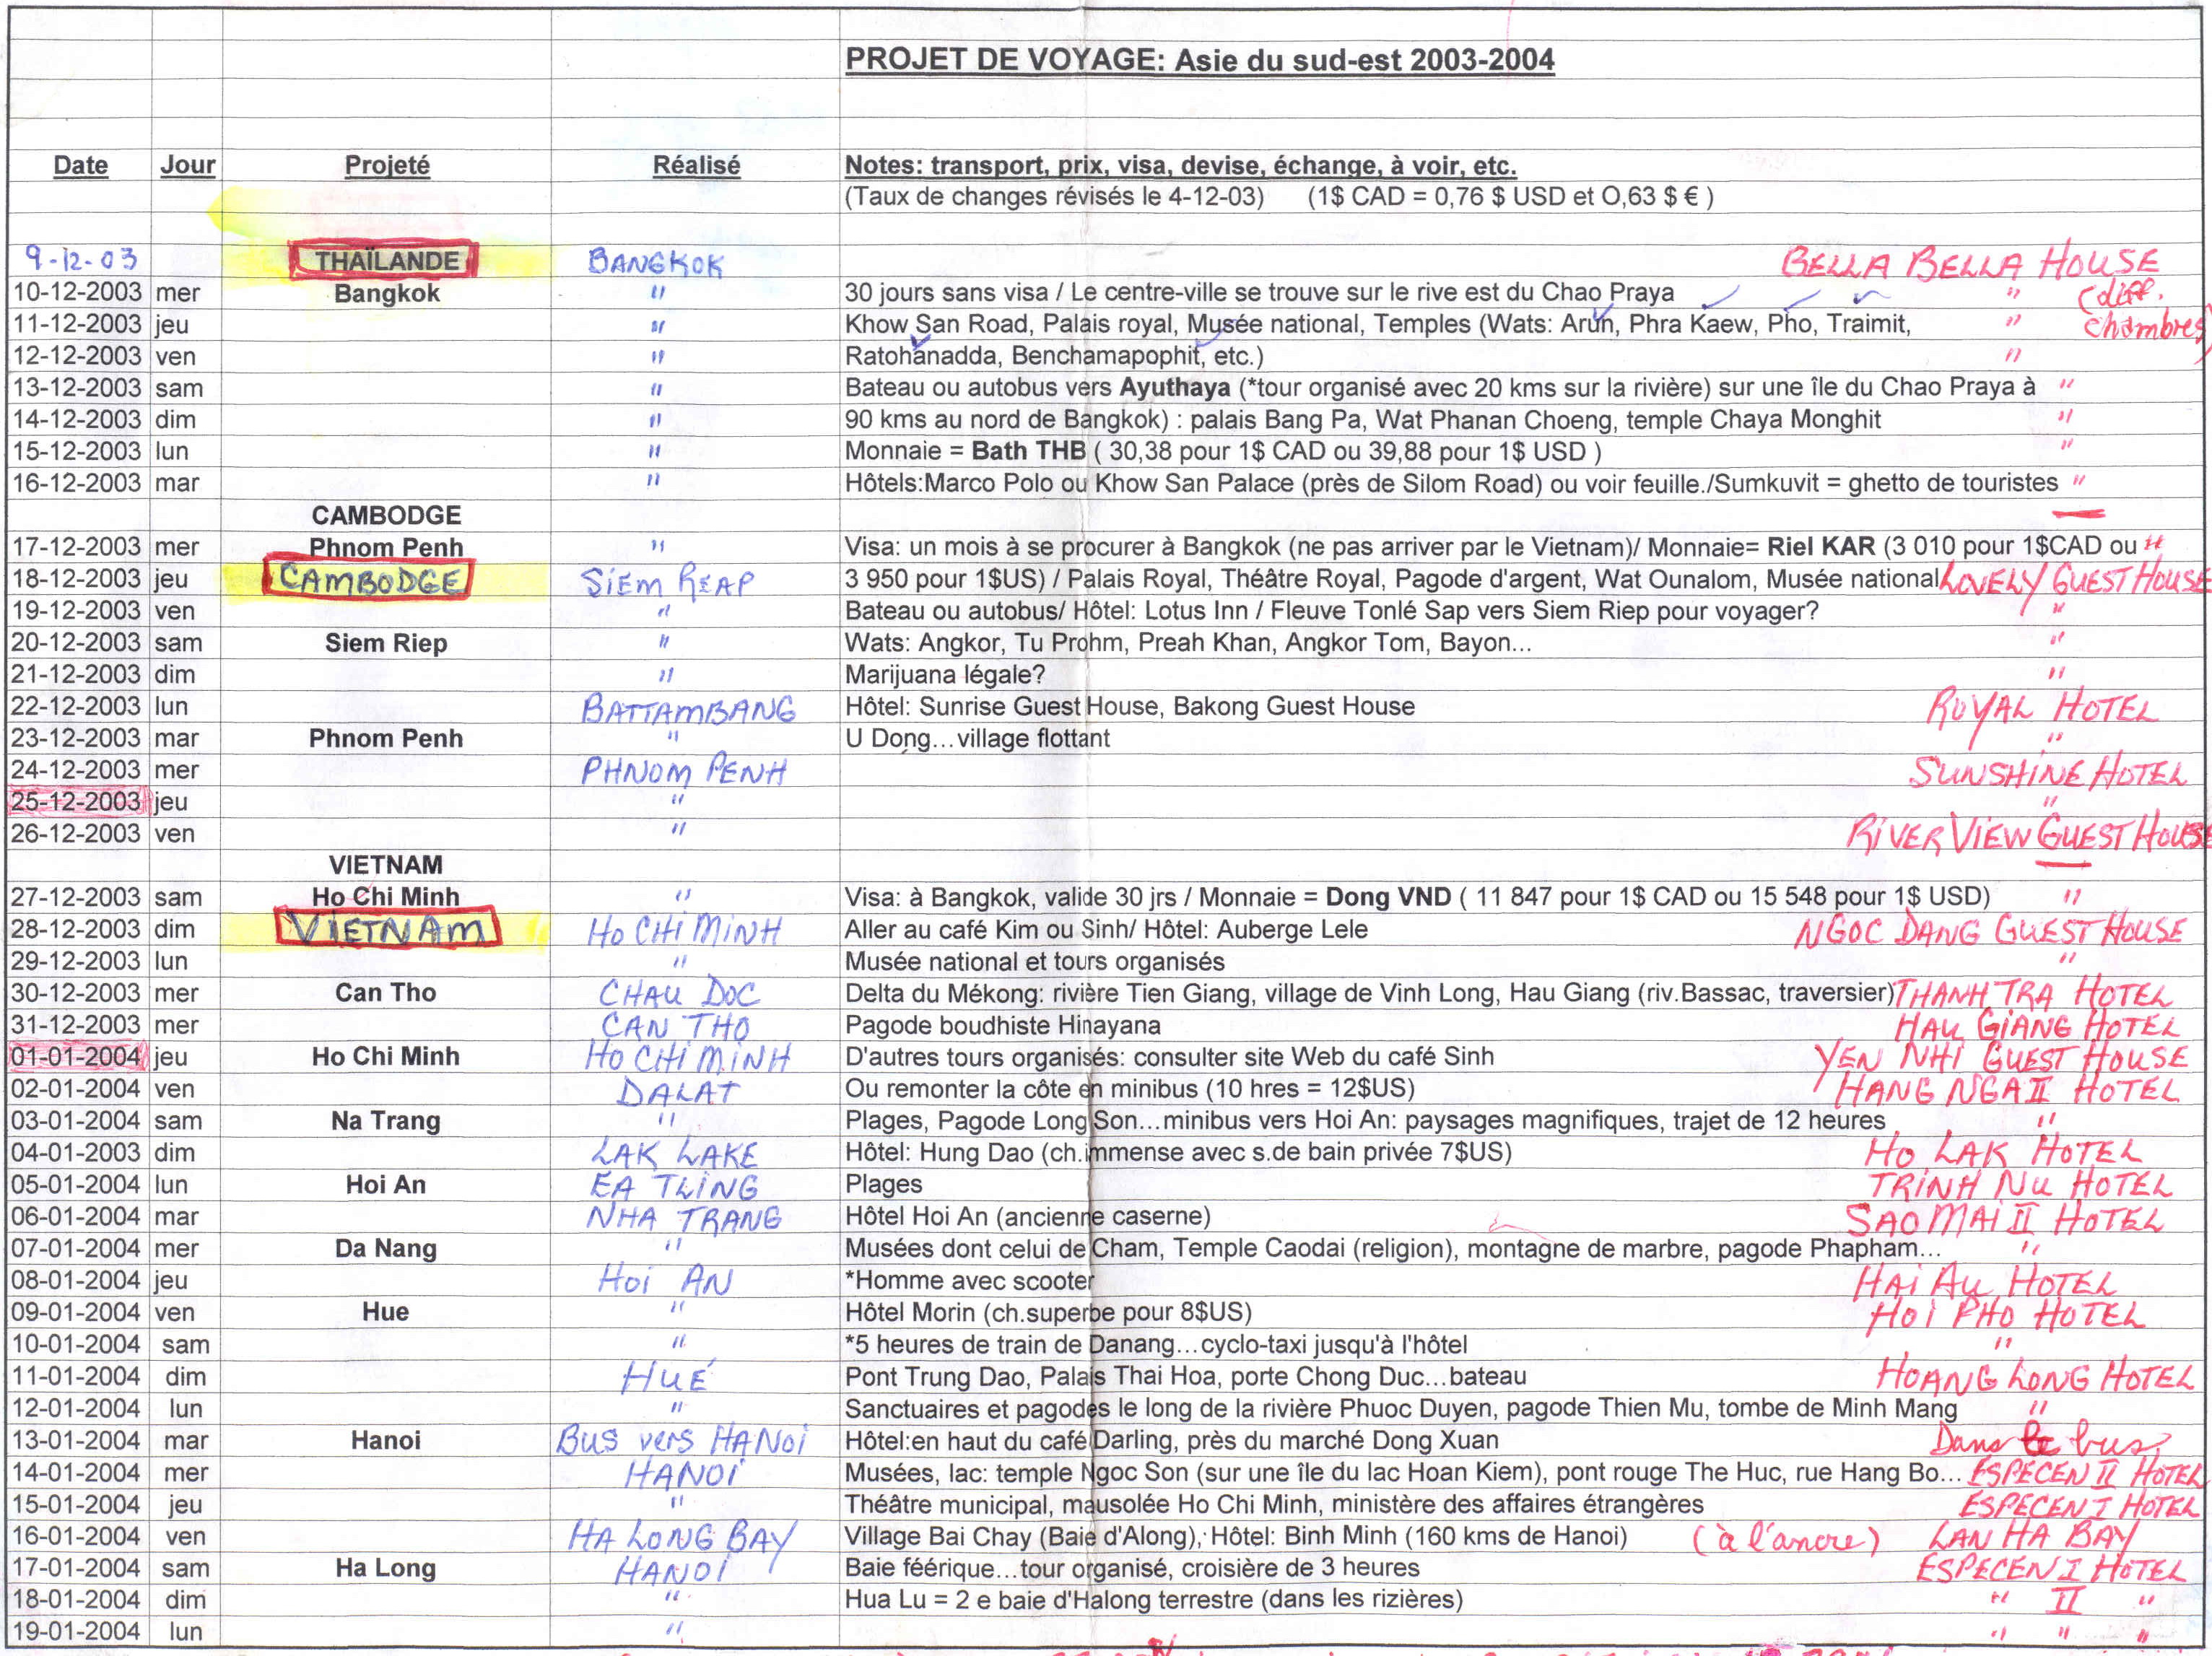 PROJET DE VOYAGE: Asie du sud-est 2003-2004
Date Jour Projeté Réalisé Notes: transport, prix, visa, devise, échange, à voir, etc.
(Taux de changes révisés le 4-12-03) (1$ CAD = 0,76 $ USD et O,63 $ € )
9-12-03 THAÏLANDE BANGKOK BELLA BELLA HOUSE
10-12-2003 mer Bangkok " 30 jours sans visa / Le centre-ville se trouve sur le rive est du Chao Praya " (diff.
11-12-2003 jeu " Khow San Road, Palais royal, Musée national, Temples (Wats: Arun, Phra Kaew, Pho, Traimit, " chambres)
12-12-2003 ven " Ratohanadda, Benchamapophit, etc.) "
13-12-2003 sam " Bateau ou autobus vers Ayuthaya (*tour organisé avec 20 kms sur la rivière) sur une île du Chao Praya à "
14-12-2003 dim " 90 kms au nord de Bangkok) : palais Bang Pa, Wat Phanan Choeng, temple Chaya Monghit "
15-12-2003 lun " Monnaie = Bath THB ( 30,38 pour 1$ CAD ou 39,88 pour 1$ USD ) "
16-12-2003 mar " Hôtels:Marco Polo ou Khow San Palace (près de Silom Road) ou voir feuille./Sumkuvit = ghetto de touristes "
CAMBODGE
17-12-2003 mer Phnom Penh " Visa: un mois à se procurer à Bangkok (ne pas arriver par le Vietnam)/ Monnaie= Riel KAR (3 010 pour 1$CAD ou "
18-12-2003 jeu CAMBODGE SIEM REAP 3 950 pour 1$US) / Palais Royal, Théâtre Royal, Pagode d'argent, Wat Ounalom, Musée national LOVELY GUEST HOUSE
19-12-2003 ven " Bateau ou autobus/ Hôtel: Lotus Inn / Fleuve Tonlé Sap vers Siem Riep pour voyager? "
20-12-2003 sam Siem Riep " Wats: Angkor, Tu Prohm, Preah Khan, Angkor Tom, Bayon... "
21-12-2003 dim " Marijuana légale? "
22-12-2003 lun BATTAMBANG Hôtel: Sunrise Guest House, Bakong Guest House ROYAL HOTEL
23-12-2003 mar Phnom Penh " U Dong...village flottant "
24-12-2003 mer PHNOM PENH SUNSHINE HOTEL
25-12-2003 jeu " "
26-12-2003 ven " RIVER VIEW GUEST HOUSE
VIETNAM
27-12-2003 sam Ho Chi Minh " Visa: à Bangkok, valide 30 jrs / Monnaie = Dong VND ( 11 847 pour 1$ CAD ou 15 548 pour 1$ USD) "
28-12-2003 dim VIETNAM HO CHI MINH Aller au café Kim ou Sinh/ Hôtel: Auberge Lele NGOC DANG GUEST HOUSE
29-12-2003 lun " Musée national et tours organisés "
30-12-2003 mer Can Tho CHAU DOC Delta du Mékong: rivière Tien Giang, village de Vinh Long, Hau Giang (riv.Bassac, traversier) THANH TRA HOTEL
31-12-2003 mer CAN THO Pagode boudhiste Hinayana HAU GIANG HOTEL
01-01-2004 jeu Ho Chi Minh HO CHI MINH D'autres tours organisés: consulter site Web du café Sinh YEN NHI GUEST HOUSE
02-01-2004 ven DALAT Ou remonter la côte en minibus (10 hres = 12$US) HANG NGA II HOTEL
03-01-2004 sam Na Trang " Plages, Pagode Long Son...minibus vers Hoi An: paysages magnifiques, trajet de 12 heures "
04-01-2003 dim LAK LAKE Hôtel: Hung Dao (ch.immense avec s.de bain privée 7$US) HO LAK HOTEL
05-01-2004 lun Hoi An EA TLING Plages TRINH NU HOTEL
06-01-2004 mar NHA TRANG Hôtel Hoi An (ancienne caserne) SAO MAI II HOTEL
07-01-2004 mer Da Nang " Musées dont celui de Cham, Temple Caodai (religion), montagne de marbre, pagode Phapham... "
08-01-2004 jeu HOI AN *Homme avec scooter HAI AU HOTEL
09-01-2004 ven Hue " Hôtel Morin (ch.superbe pour 8$US) HOI PHO HOTEL
10-01-2004 sam " *5 heures de train de Danang...cyclo-taxi jusqu'à l'hôtel "
11-01-2004 dim HUÉ Pont Trung Dao, Palais Thai Hoa, porte Chong Duc...bateau HOANG LONG HOTEL
12-01-2004 lun " Sanctuaires et pagodes le long de la rivière Phuoc Duyen, pagode Thien Mu, tombe de Minh Mang "
13-01-2004 mar Hanoi BUS vers HANOI Hôtel:en haut du café Darling, près du marché Dong Xuan Dans le bus
14-01-2004 mer HANOI Musées, lac: temple Ngoc Son (sur une île du lac Hoan Kiem), pont rouge The Huc, rue Hang Bo... ESPECEN II HOTEL
15-01-2004 jeu " Théâtre municipal, mausolée Ho Chi Minh, ministère des affaires étrangères ESPECEN I HOTEL
16-01-2004 ven HA LONG BAY Village Bai Chay (Baie d'Along), Hôtel: Binh Minh (160 kms de Hanoi) (à l'ancre) LAN HA BAY
17-01-2004 sam Ha Long HANOI Baie féérique...tour organisé, croisière de 3 heures ESPECEN I HOTEL
18-01-2004 dim " Hua Lu = 2 e baie d'Halong terrestre (dans les rizières) " II "
19-01-2004 lun " " " "